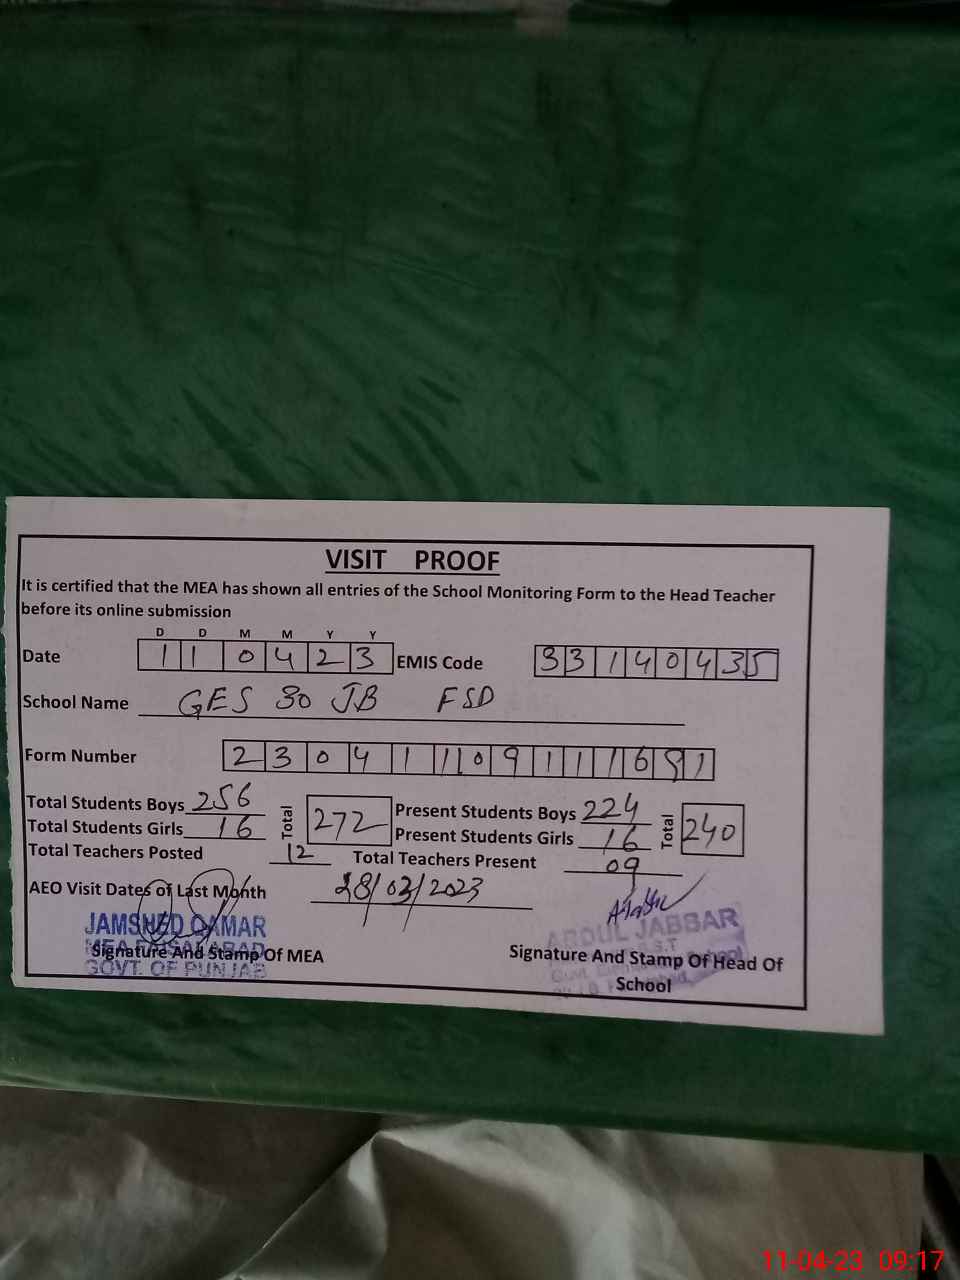 VISIT PROOF
It is certified that the MEA has shown all entries of the School Monitoring Form to the Head Teacher
before its online submission
D D M M Y Y
Date 1 1 0 4 2 3 EMIS Code 3 3 1 4 0 4 3 5
School Name GES 30 JB FSD
Form Number 2 3 0 4 1 1 0 9 1 1 1 6
Total Students Boys 256 Total 272 Present Students Boys 224 Total 240
Total Students Girls 16 Present Students Girls 16
Total Teachers Posted 12 Total Teachers Present 09
AEO Visit Dates of Last Month 28/03/2023
JAMSHED QAMAR
MEA FAISALABAD
GOVT. OF PUNJAB
Signature And Stamp Of MEA
ABDUL JABBAR
Signature And Stamp Of Head Of
School
11-04-23 09:17